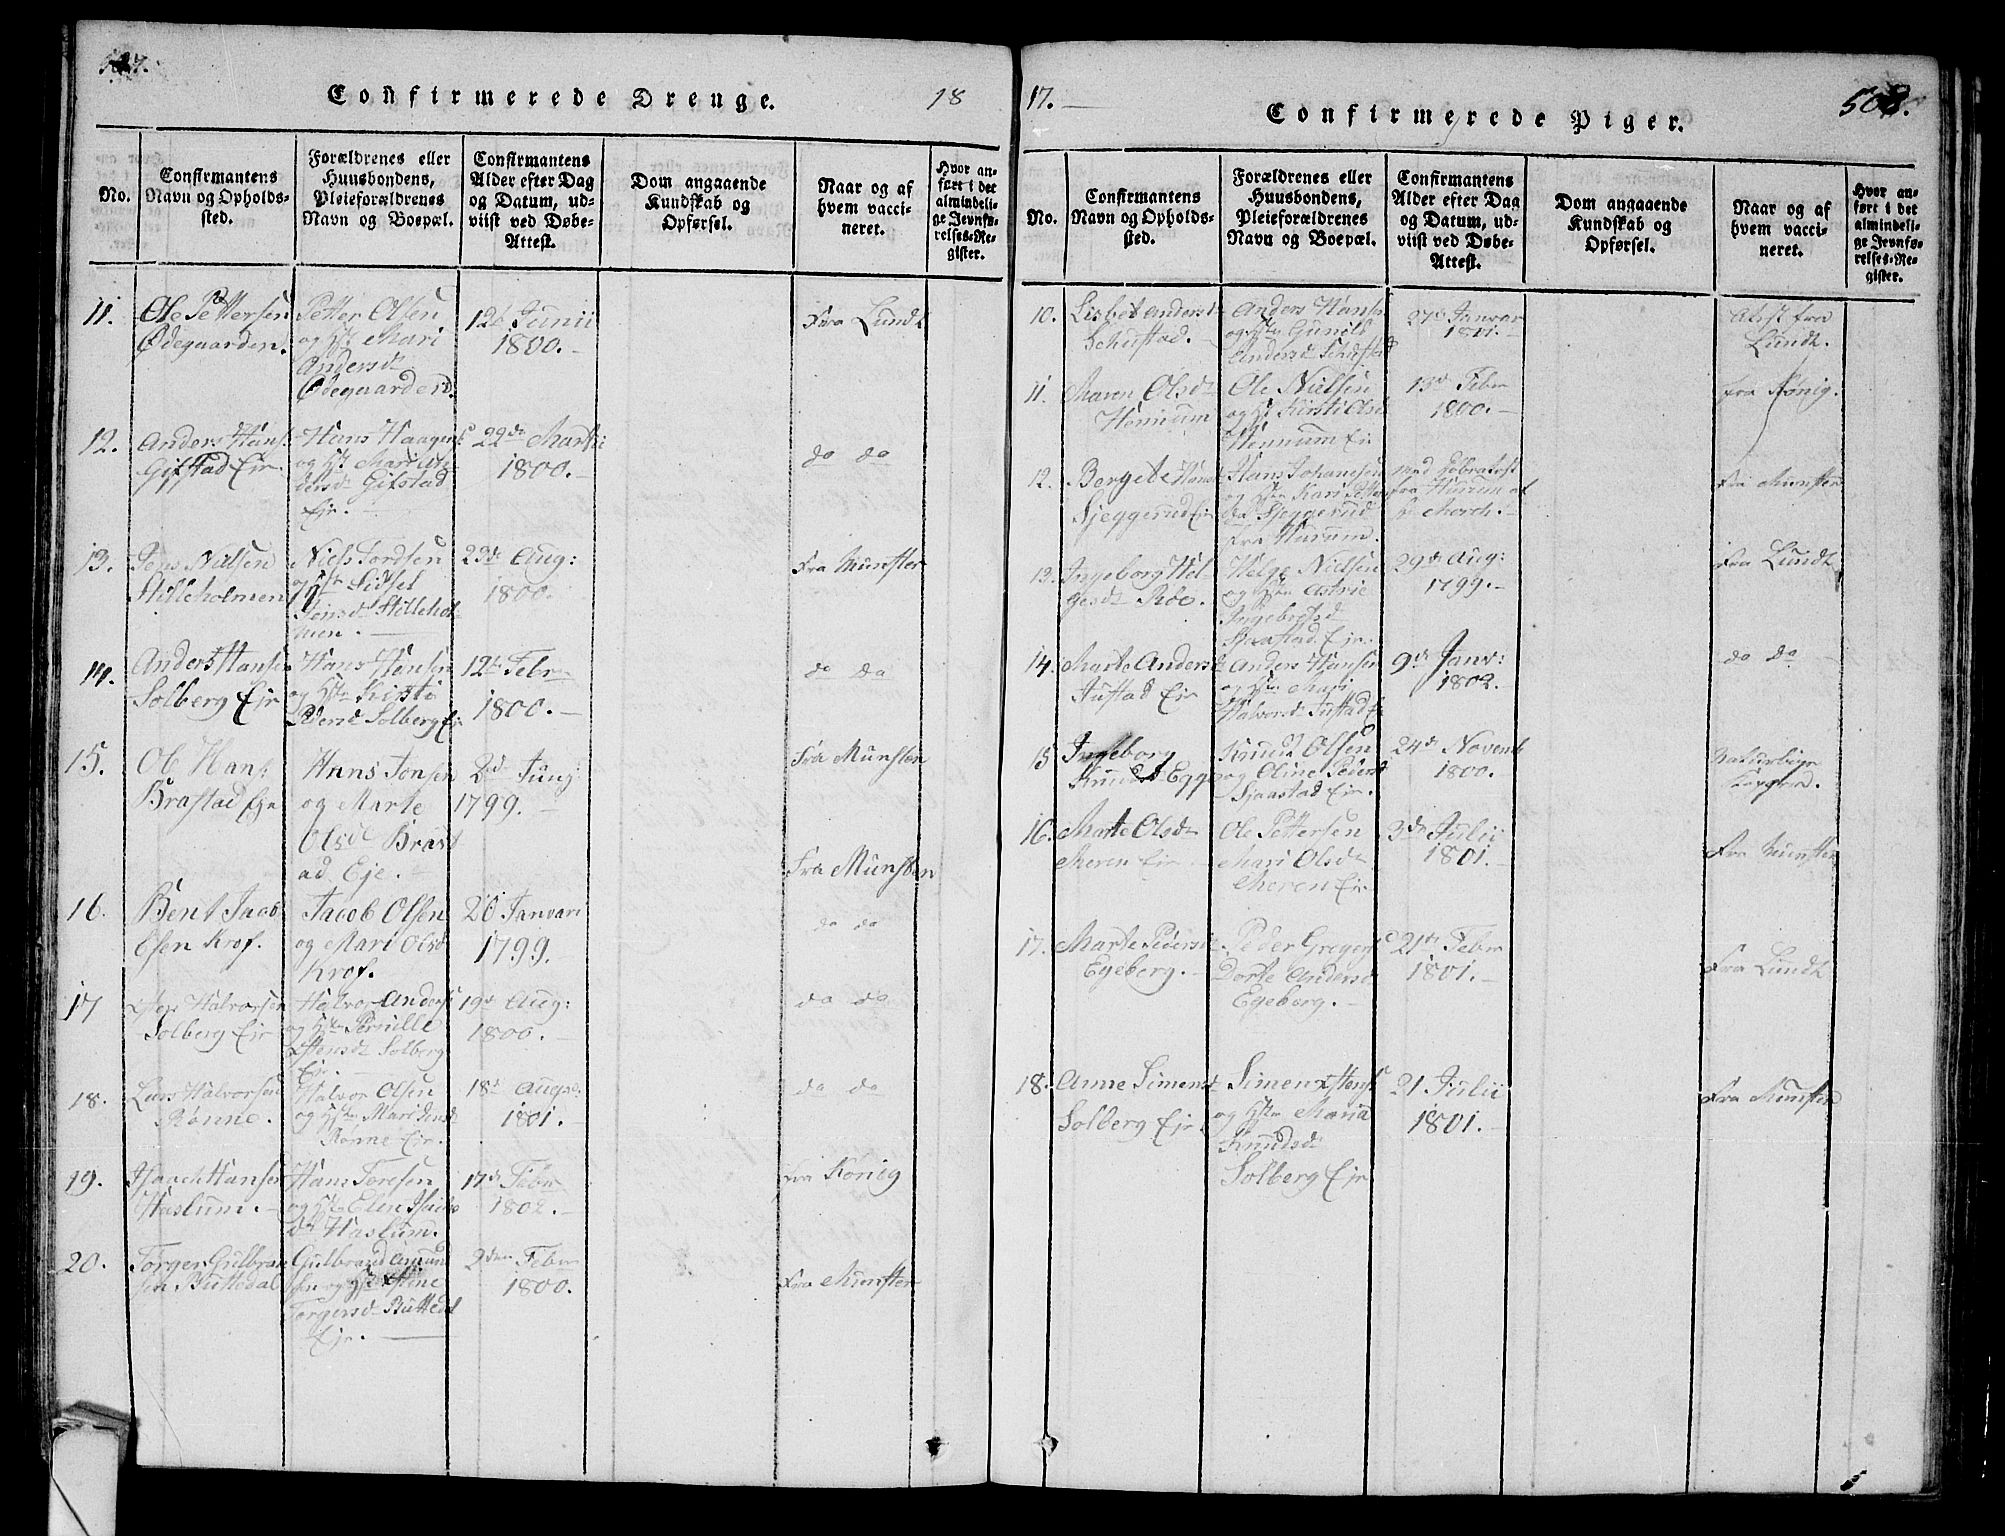 Confirmerede Drenge.
18
No.
Confirmantens
Navn og Opholds-
sted.
Forældrenes eller
Huusbondens,
Pleieforældrenes
Navn og Boepæl.
Confirmantens
Alder efter Dag
og Datum, ud-
viist ved Døbe-
Attest.
Dom angaaende
Kundskab og
Opførsel.
Naar og af
hvem vacci-
neret.
Hvor an-
ført i det
almindeli-
ge Jevnfø-
relses-Re-
gister.
11.
Ole Pettersen
Ødegaarden.
Petter Olsen
og Hst Mari
Andersd
Ødegaarden.
12t Junii
1800.
Fra Lundt
12.
Anders Hans.
Gifstad Eir.
Hans Haagens
og Hst Mari An-
dersd Gifstad
Ejr.
22de Marti:
1800.
do do
13.
Jens Nielsen
Stilleholmen
Niels Tordsen
og Hst Sidsel
Jensd Stillehol-
men.
23de Aug:
1800.
Fra Munster
14.
Anders Hansen
Solberg Ejr
Hans Hansen
og Hst Kirsti
Pedersd Solberg Ejr
12te Febr
1800.
do do
15.
Ole Hans:
Brastad Eje
Hans Jonsen
og Marte
Olsd Brast
ad Eje.
2d Jung:
1799.
Fra Munsten
Fra Munsten
16.
Bent Jacob
Esen Krof.
Jacob Olsen
og Mari Olsd
Krof.
20 Januari
1799.
do do
17
Halvorsen
Solberg Ejr
Halvor Anders
og Hst Pernille
Solberg
Ejr.
19d Aug:
1800.
do do
18.
Lars Halvorsen
Rønne.
Halvor Olsen
og Hst Mari
Rønne Eir.
18d Augs:
1801.
do do
19.
Isaach Hansen
Haslum.
Hans Toresen
og Hst Elen Isachs
d Haslum.
17d Febr
1802.
fra Kønig
20.
Torger Gulbran
sen Buttedal
Gulbrand Amun
sen og Hst Stine
Torgersd Butteda
Ejr.
2den Febr
1800.
Fra Munster
17.
Confirmerede Piger.
508.
No.
Confirmantens
Navn og Opholds-
sted.
Forældrenes eller
Huusbondens,
Pleieforældrenes
Navn og Boepæl.
Confirmantens
Alder efter Dag
og Datum, ud-
viist ved Døbe-
Attest.
Dom angaaende
Kundskab og
Opførsel.
Naar og af
hvem vacci-
neret.
Hvor an-
ført i det
almindeli-
ge Jevnfø-
relses-Re-
gister.
10.
Lisbet Andersd
Schustad.
Anders Hansen
og Hst Gunild
Andersd Schustad
27d Januar
1801.
Attst fra
Lundt.
11.
Maren Olsd
Hennum
Ole Nielsen
og Hst Kirsti Olsd
Hennum Eir
13d Febr
1800.
fra Kønig.
12.
Borgete Hansd
Sjeggerud Eir
Hans Johanesen
og Hst Kari Petter
sd Sjeggerud
fra Hurum.
med Døbeatest
fra Hurum af
p Morch.
fra Munster
13.
Ingeborg Hel-
gesd Røe.
Helge Nielsen
og Hst Astrie
Ingebretsd
Ejr.
29de Aug:
1799.
fra Lundt
14.
Marte Andersd
Justad Eir
Anders Hansen
og Hst Mari
Halvorsd Justad Ei
9d Janv:
1802.
do do
15
Ingeborg
Knudsd Egge
Knud Olsen
og Oline Pedersd
Sjaastad Eir.
24d Novemb
1800.
Naturlige
Kopper.
16.
Marte Olsd
Meren Eir
Ole Pettersen
Mari Olsd
Meren Eir
3de Julii
1801.
Fra Munster
17.
Marte Pedersd
Egeberg.
Peder Gregers
Dorte Andersd
Egeberg.
21de Febr
1801.
Fra Lundt
18.
Anne Simensd
Solberg Ejr
Simen
og Hst Maria
Knudsd
Solberg Ejr
21 Julii
1801.
Fra Munsten